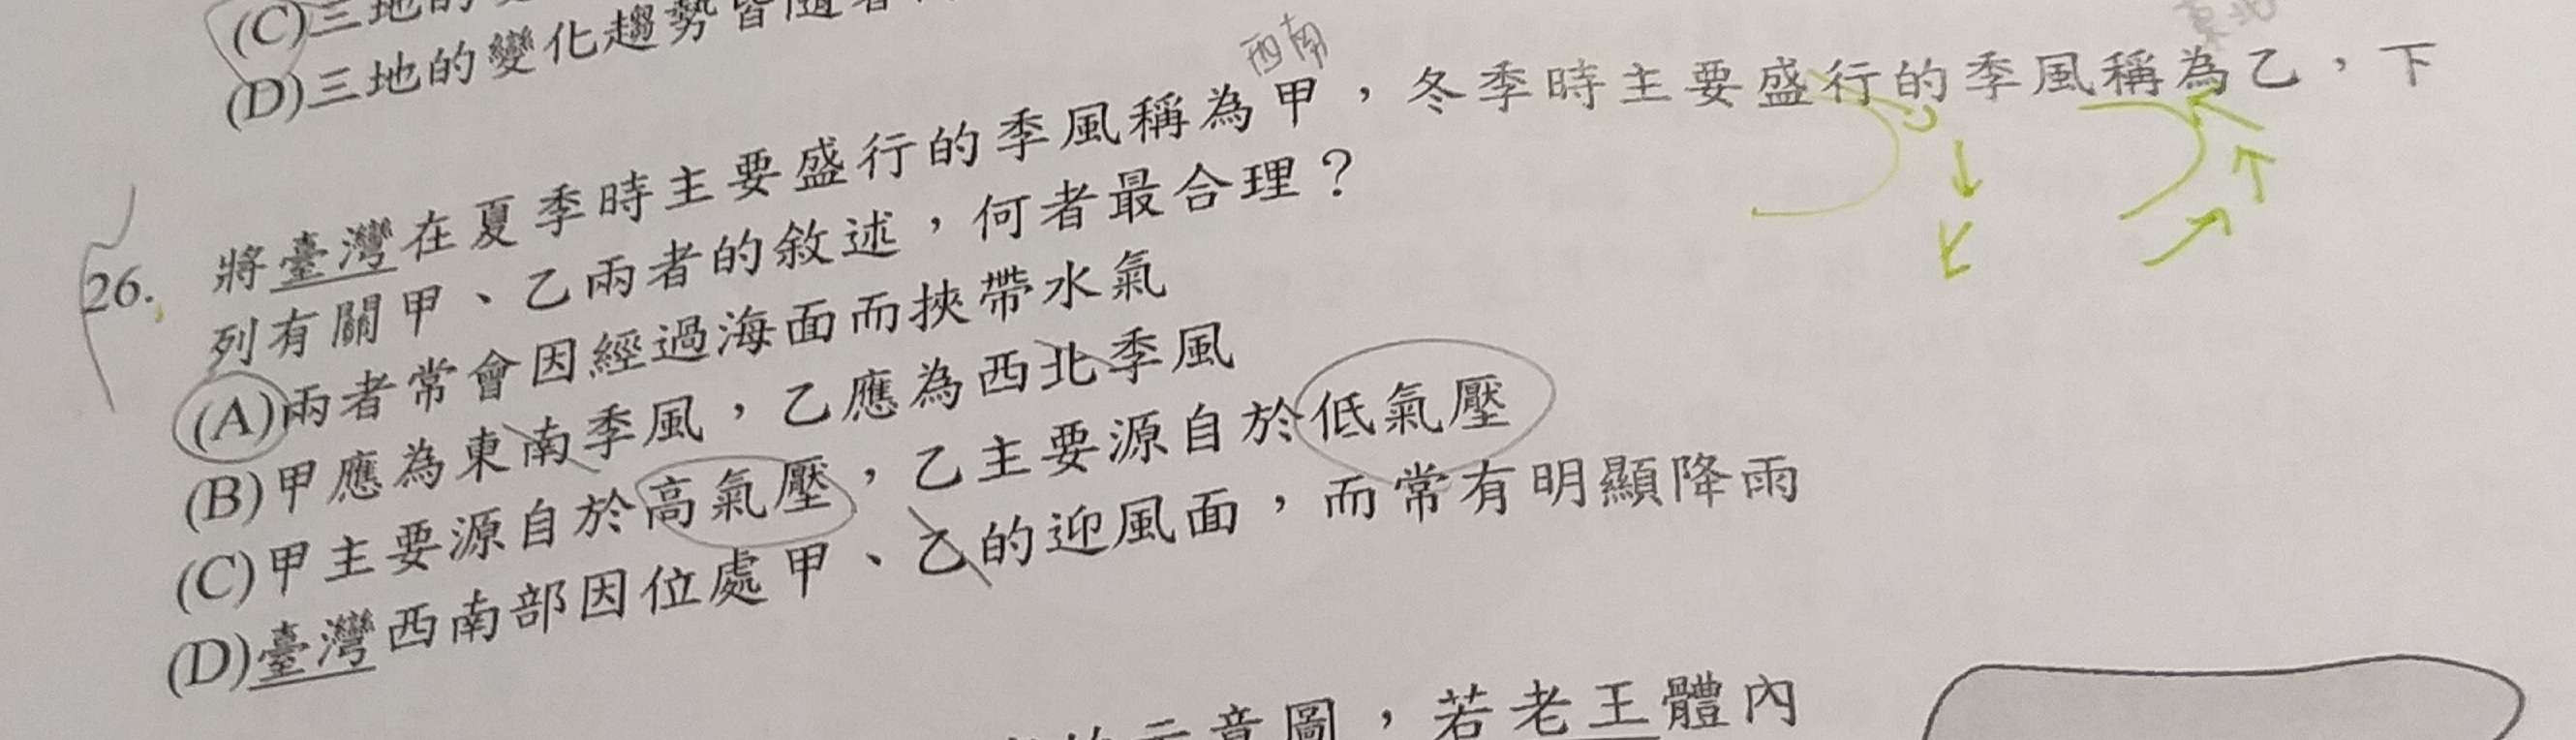 (C)三地的
(D)三地的變化趨勢皆隨著
西南
東北
26. 將臺灣在夏季時主要盛行的季風稱為甲，冬季時主要盛行的季風稱為乙，下
列有關甲、乙兩者的敘述，何者最合理？
(A)兩者常會因經過海面而挾帶水氣
(B)甲應為東南季風，乙應為西北季風
(C)甲主要源自於高氣壓，乙主要源自於低氣壓
(D)臺灣西南部因位處甲、乙的迎風面，而常有明顯降雨
示意圖，若老王體內